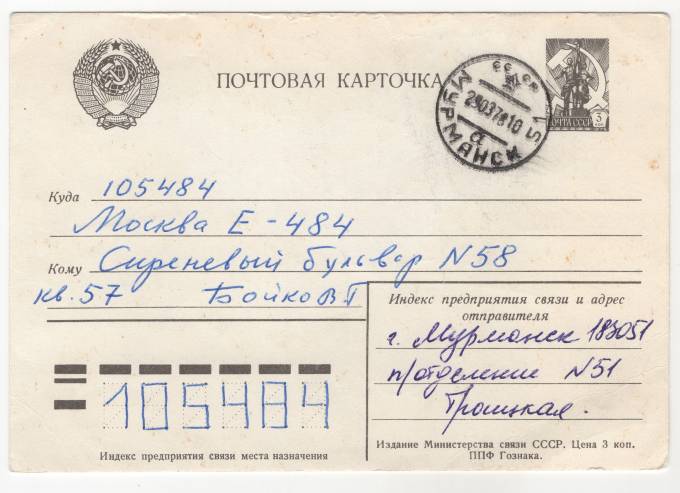 ПОЧТОВАЯ КАРТОЧКА
МУРМАНСК 51
а
ПОЧТА СССР
3
коп
Куда 105484
Москва Е-484
Кому Сиреневый бульвар N58
кв. 57 Бойко В Г
Индекс предприятия связи и адрес
отправителя
г. Мурманск 183051
п/отделение N51
Троицкая.
105484
Индекс предприятия связи места назначения
Издание Министерства связи СССР. Цена 3 коп.
ППФ Гознака.